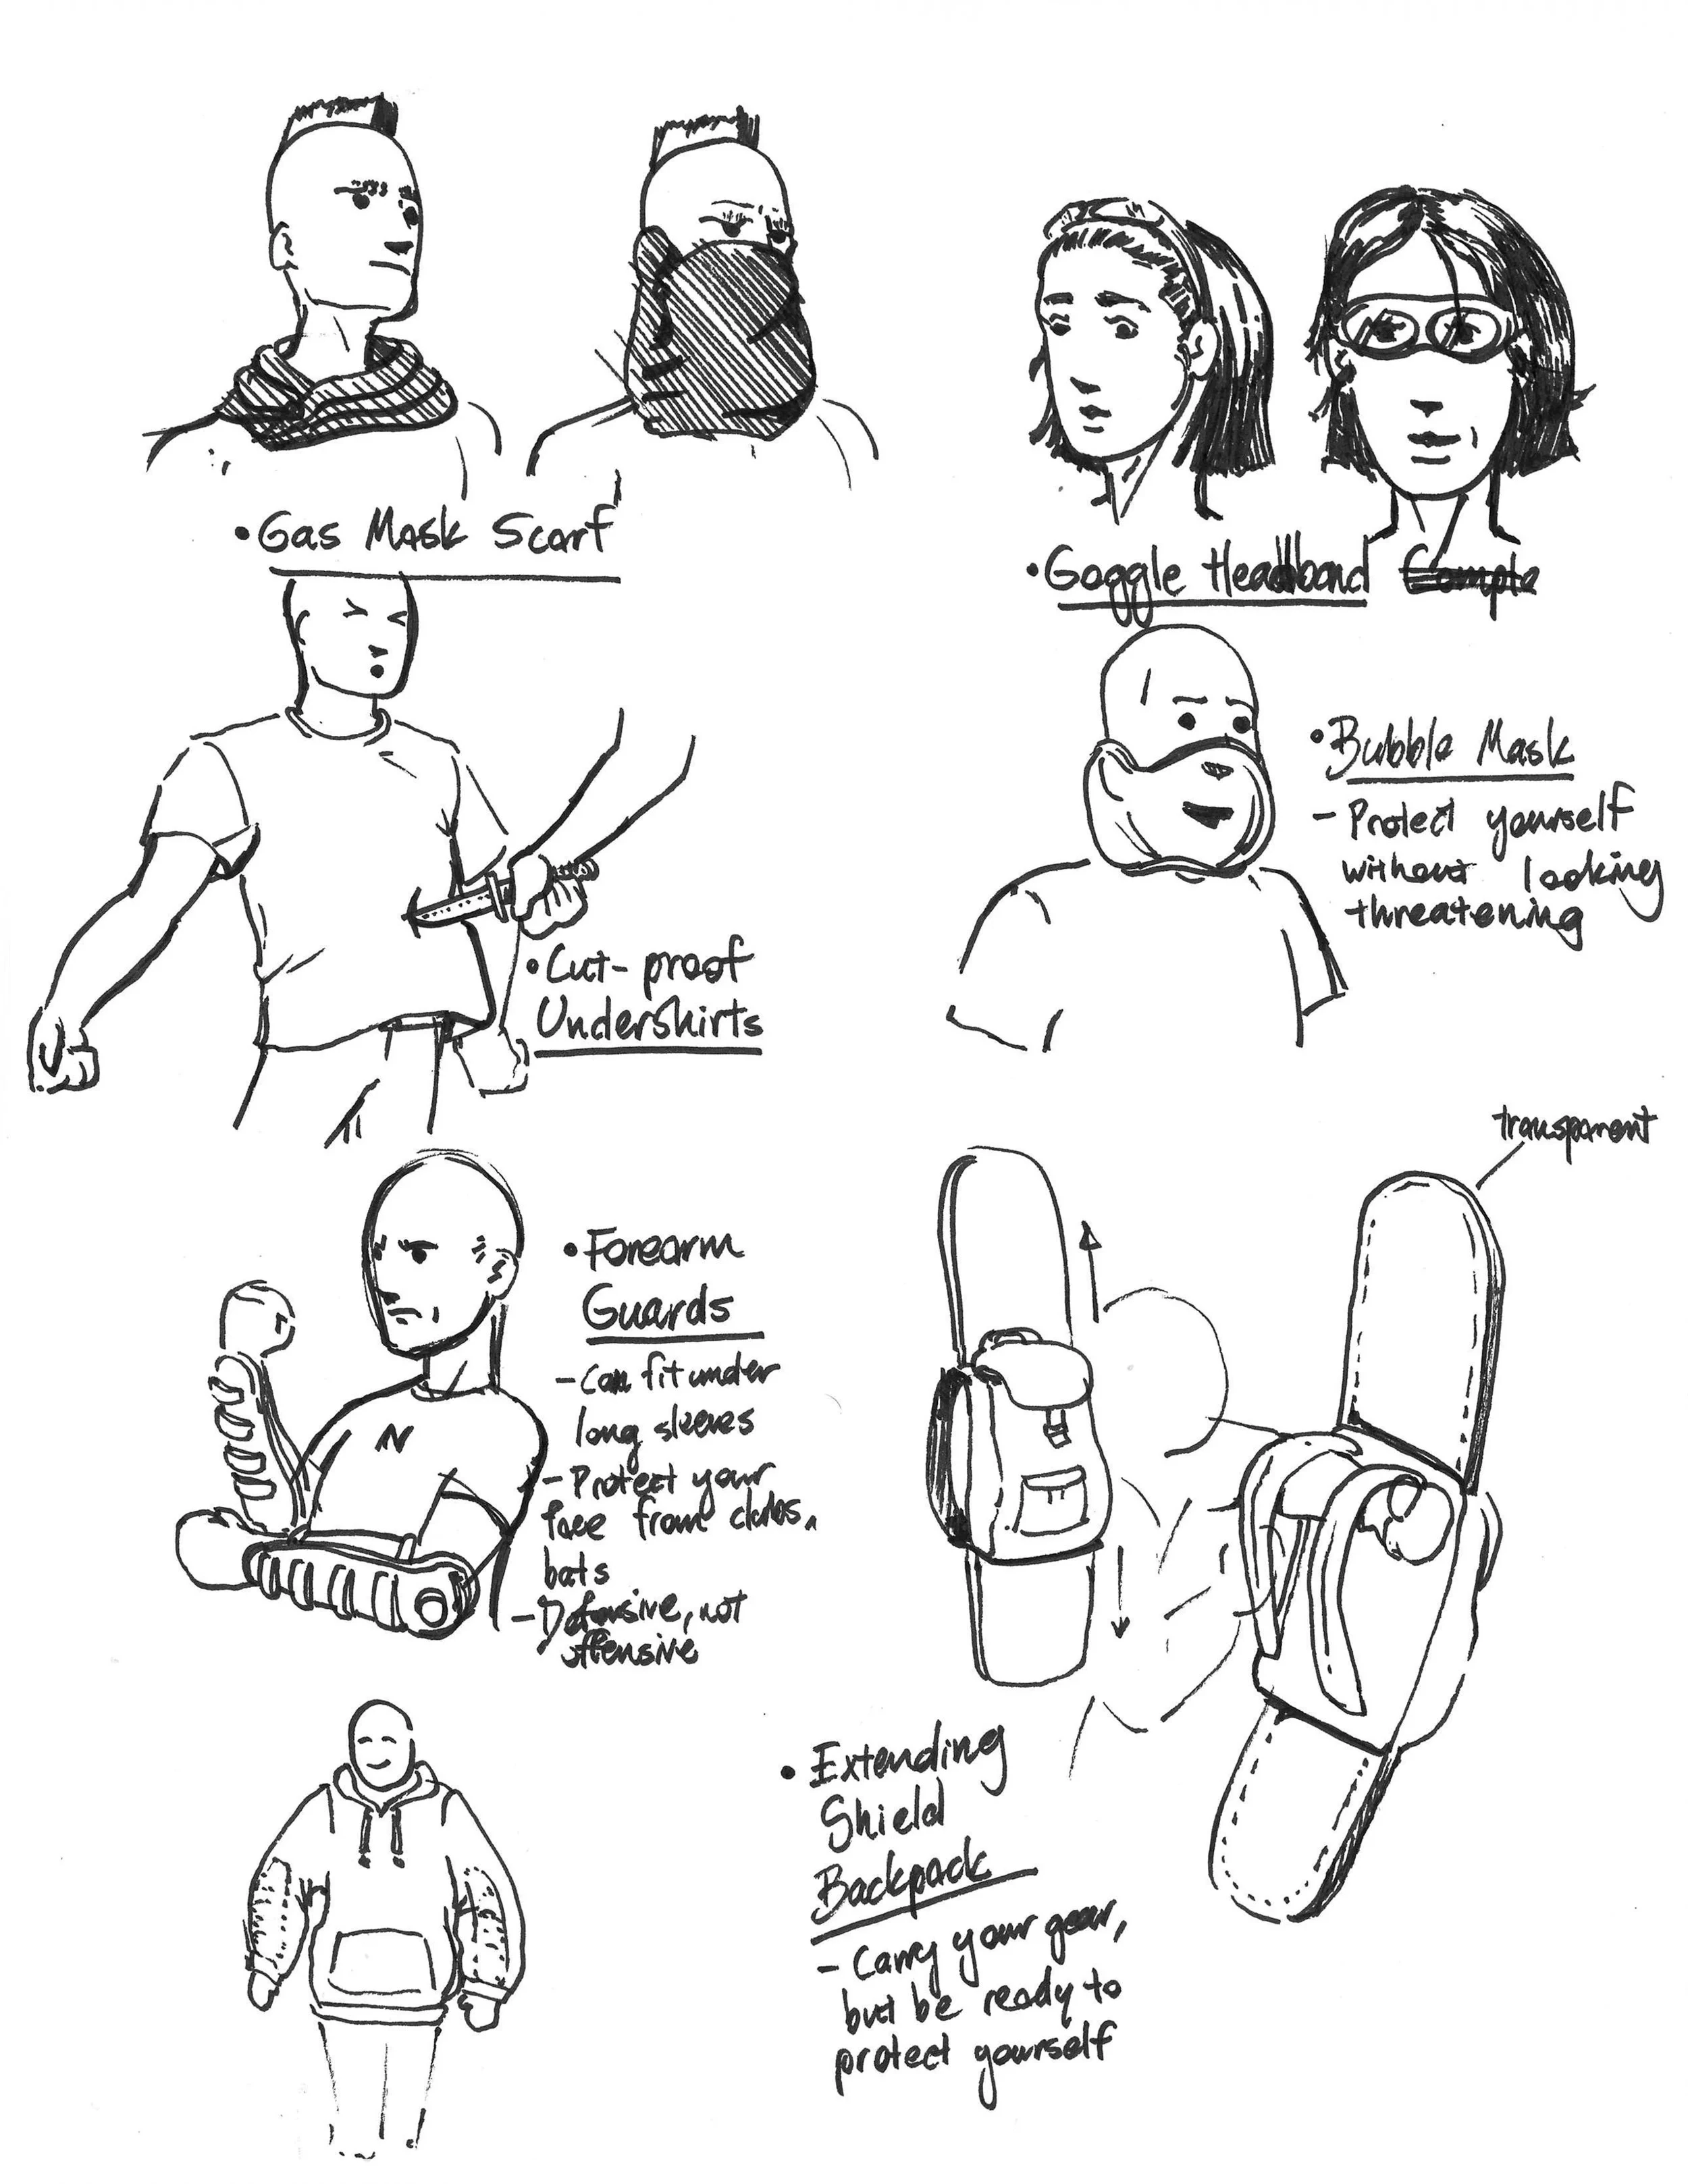 • Gas Mask Scarf
• Goggle Headband Comple
• Bubble Mask
- Protect yourself
without looking
threatening
• Cut-proof
Undershirts
transparent
• Forearm
Guards
- Can fit under
long sleeves
- Protect your
face from clubs,
bats
- Defensive, not
offensive
N
• Extending
Shield
Backpack
- Carry your gear,
but be ready to
protect yourself